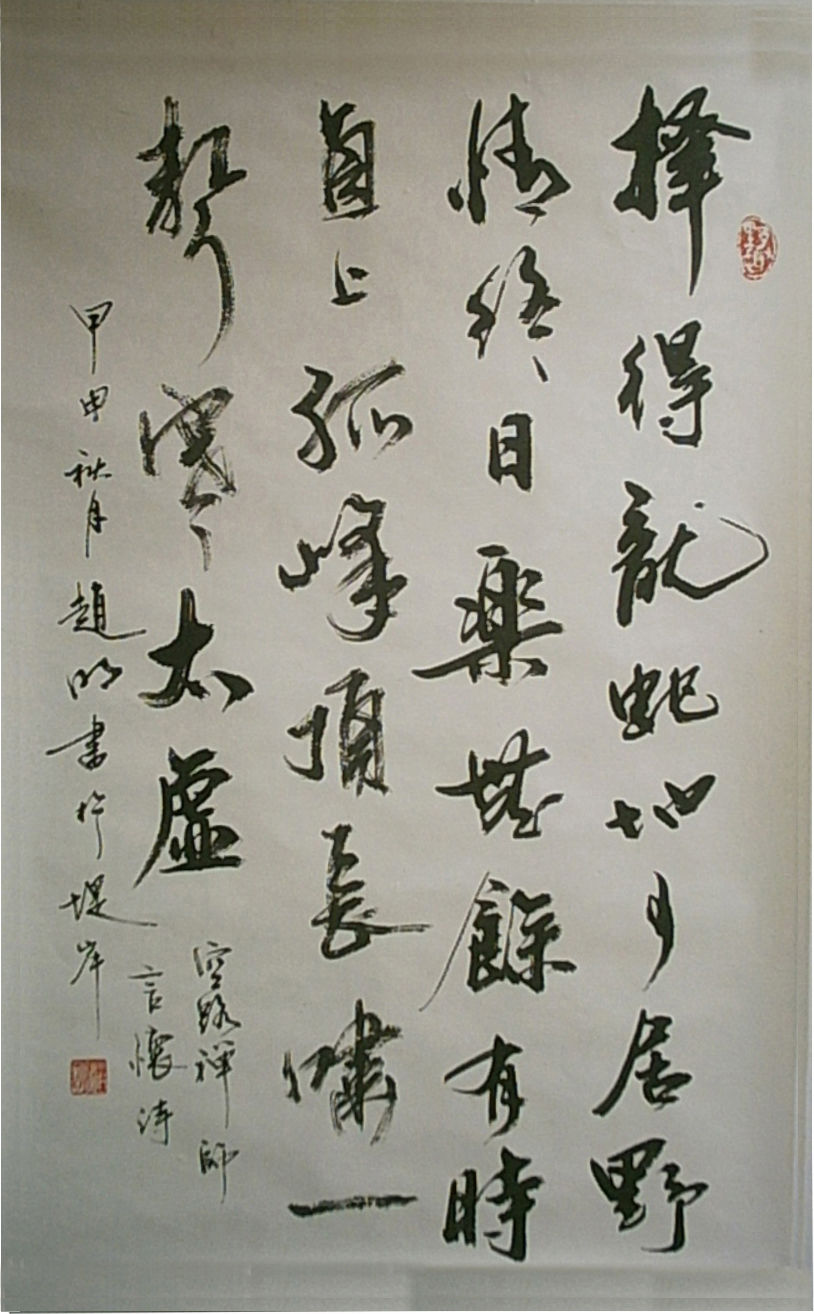 擇得龍蛇地可居野
情終日楽無餘有時
直上孤峰頂長嘯一
聲寒太虛
空路禪師
言懷詩
甲申秋月趙明書於堤岸